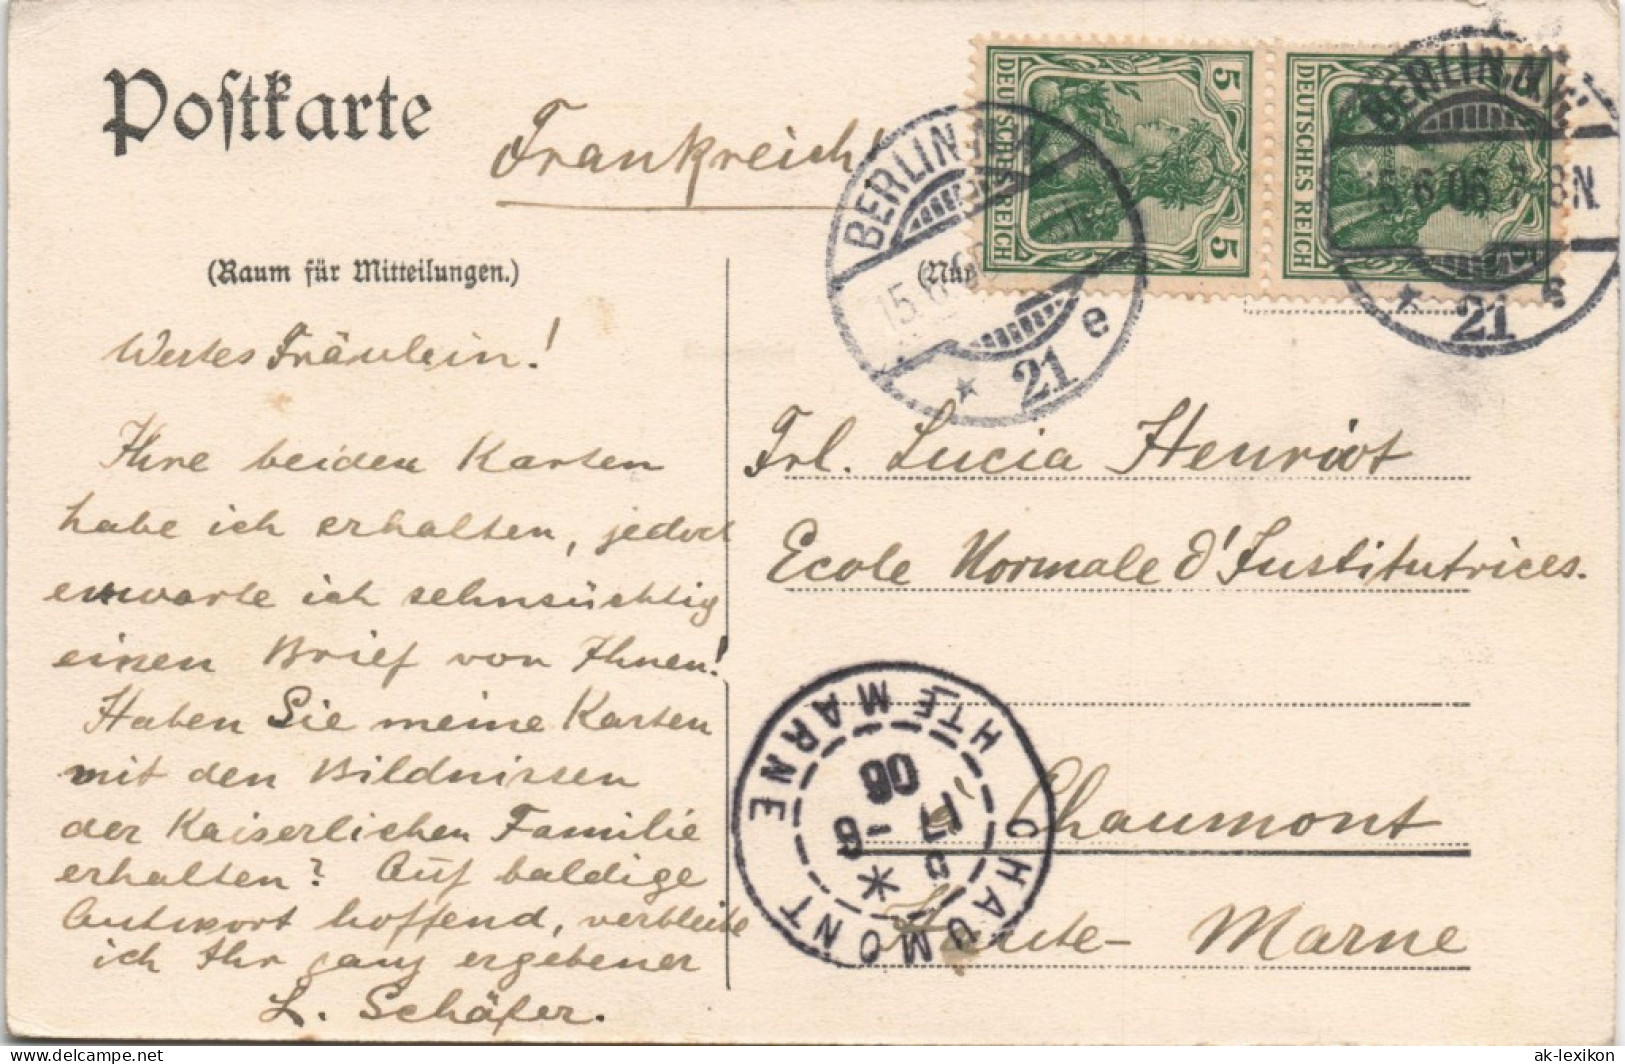 Postkarte
Frankreich
(Raum für Mitteilungen.)
(Nur
DEUTSCHES REICH
5
5
DEUTSCHES REICH
5
BERLIN
15.6.
* 21 e
BERLIN.N.W.
15.6.06.7-8N
* 21 s
Wertes Fräulein!
Ihre beiden Karten
habe ich erhalten, jedoch
erwarte ich sehnsüchtig
einen Brief von Ihnen!
Haben Sie meine Karten
mit den Bildnissen
der Kaiserlichen Familie
erhalten? Auf baldige
Antwort hoffend, verbleibe
ich Ihr ganz ergebener
L. Schäfer.
Frl. Lucia Henriot
Ecole Normale d'Institutrices.
Chaumont
Haute-Marne
CHAUMONT HTE MARNE
17
6
06
www.ansichtskarten-center.de
ak-lexikon